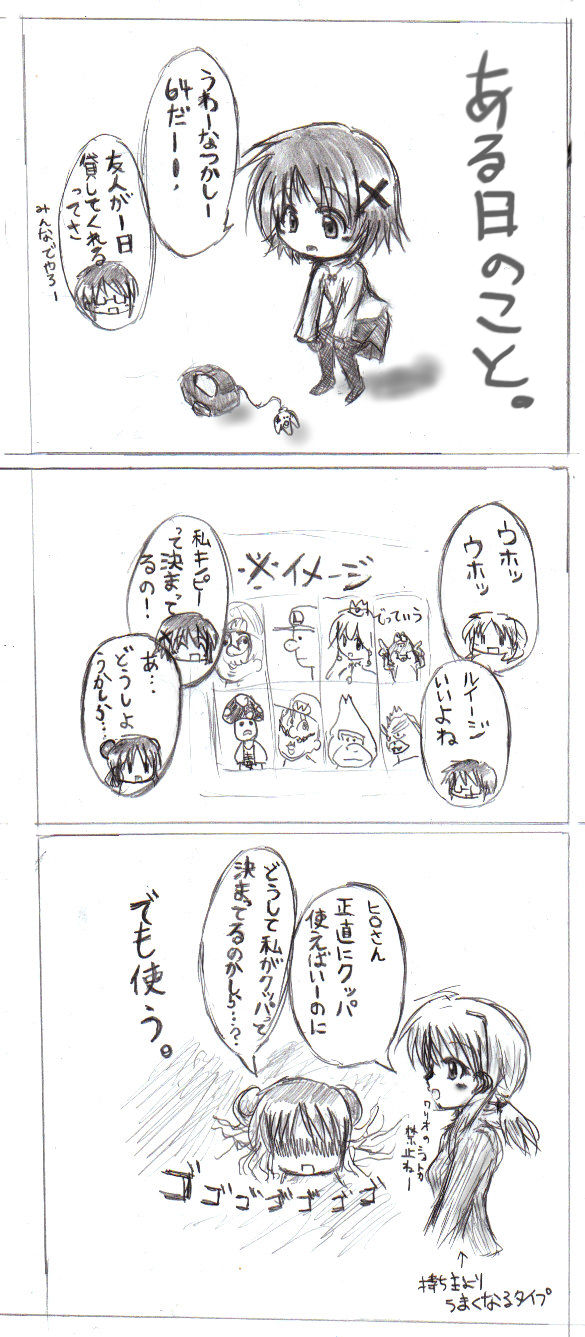 ある日のこと。
うわーなつかしー
64だーー、
友人が一日
貸してくれる
ってさ
みんなでやろー
ウホッ
ウホッ
※イメージ
でっていう
ルイージ
いいよね
私キノピー
って決まって
るの!
あ…
どうしよ
うかしか…
ヒロさん
正直にクッパ
使えばいーのに
どうして私がクッパって
決まってるのかしら…?
でも使う。
ゴゴゴゴゴゴゴ
禁止ねー
↑
持ち主より
うまくなるタイプ